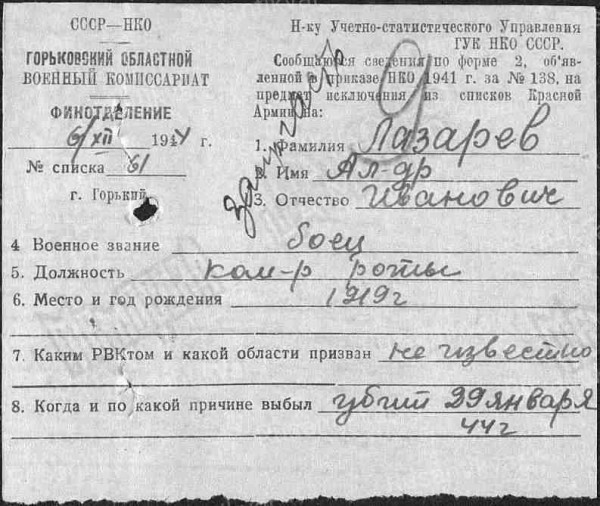 СССР—НКО
ГОРЬКОВСКИЙ ОБЛАСТНОЙ
ВОЕННЫЙ КОМИССАРИАТ
ФИНОТДЕЛЕНИЕ
6/XII 1944 г.
№ списка 61
г. Горький
Н-ку Учетно-статистического Управления
ГУК НКО СССР.
Сообщаются сведения по форме 2, об'яв-
ленной в приказе НКО 1941 г. за № 138, на
предмет исключения из списков Красной
Армии на:
1. Фамилия Лазарев
2. Имя Ал-др
3. Отчество Иванович
4 Военное звание боец
5. Должность ком-р роты
6. Место и год рождения 1919г
7. Каким РВКтом и какой области призван не известно
8. Когда и по какой причине выбыл убит 29 января
44 г